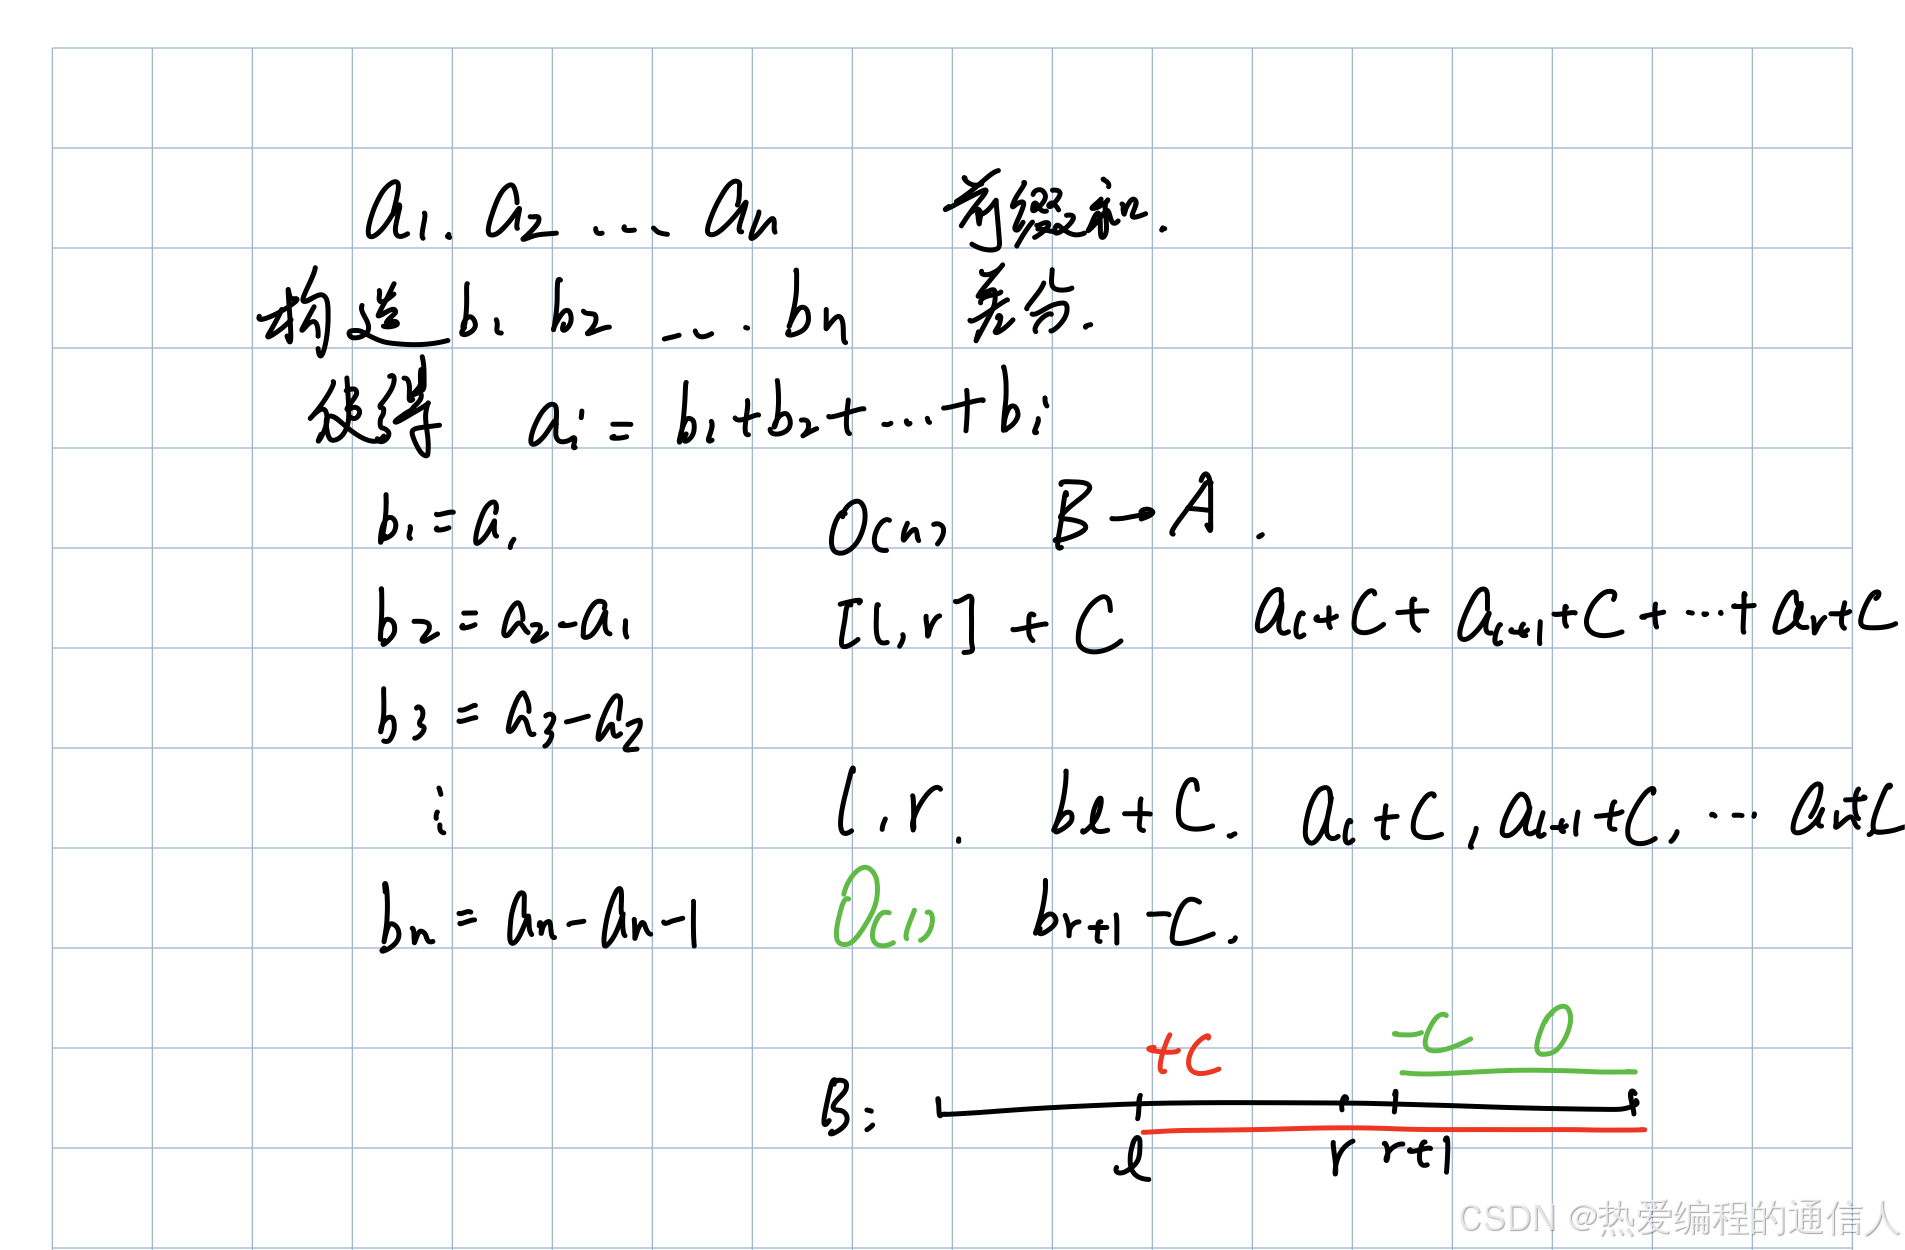 a₁. a₂ ... aₙ 前缀和.
构造 b₁ b₂ ... bₙ 差分.
使得 aᵢ = b₁+b₂+...+bᵢ
b₁ = a₁ O(n) B → A .
b₂ = a₂-a₁ [l,r] + C a_l+C + a_{l+1}+C + ...+ a_r+C
b₃ = a₃-a₂
⋮ l,r. b_l+C. a_l+C, a_{l+1}+C, ... a_n+C
bₙ = aₙ-aₙ-1 O(1) b_{r+1}-C.
+C -C 0
B:
l r r+1
CSDN @热爱编程的通信人